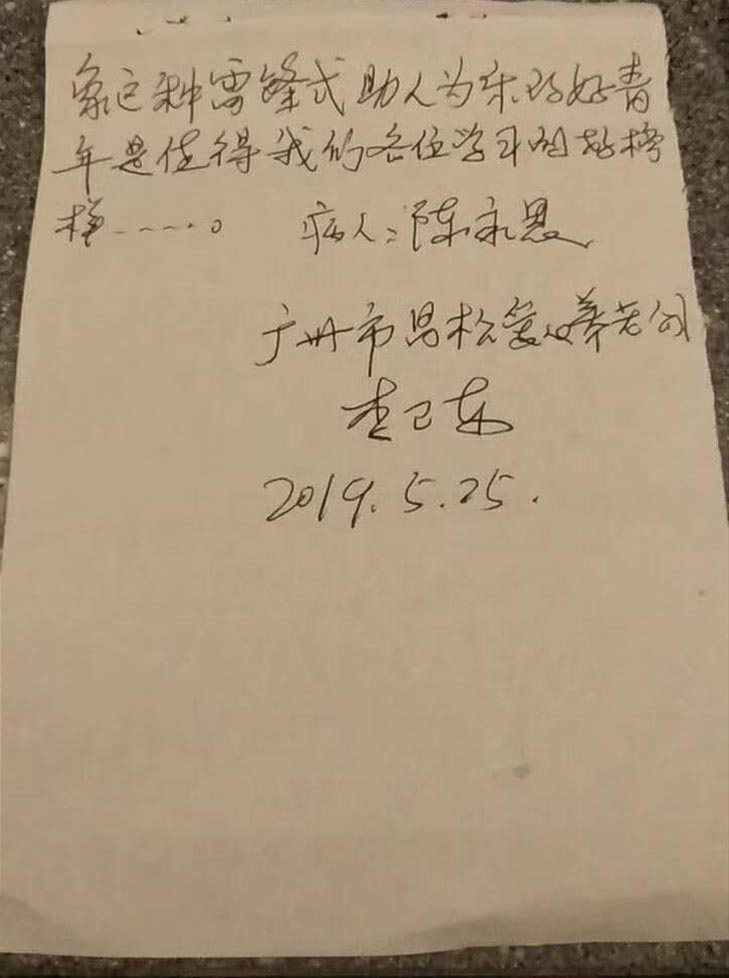 象这种雷锋式助人为乐的好青
年是值得我们各位学习的好榜
样……。 病人:陈永恩
广州市昌松爱心养老公司
李卫东
2019.5.25.